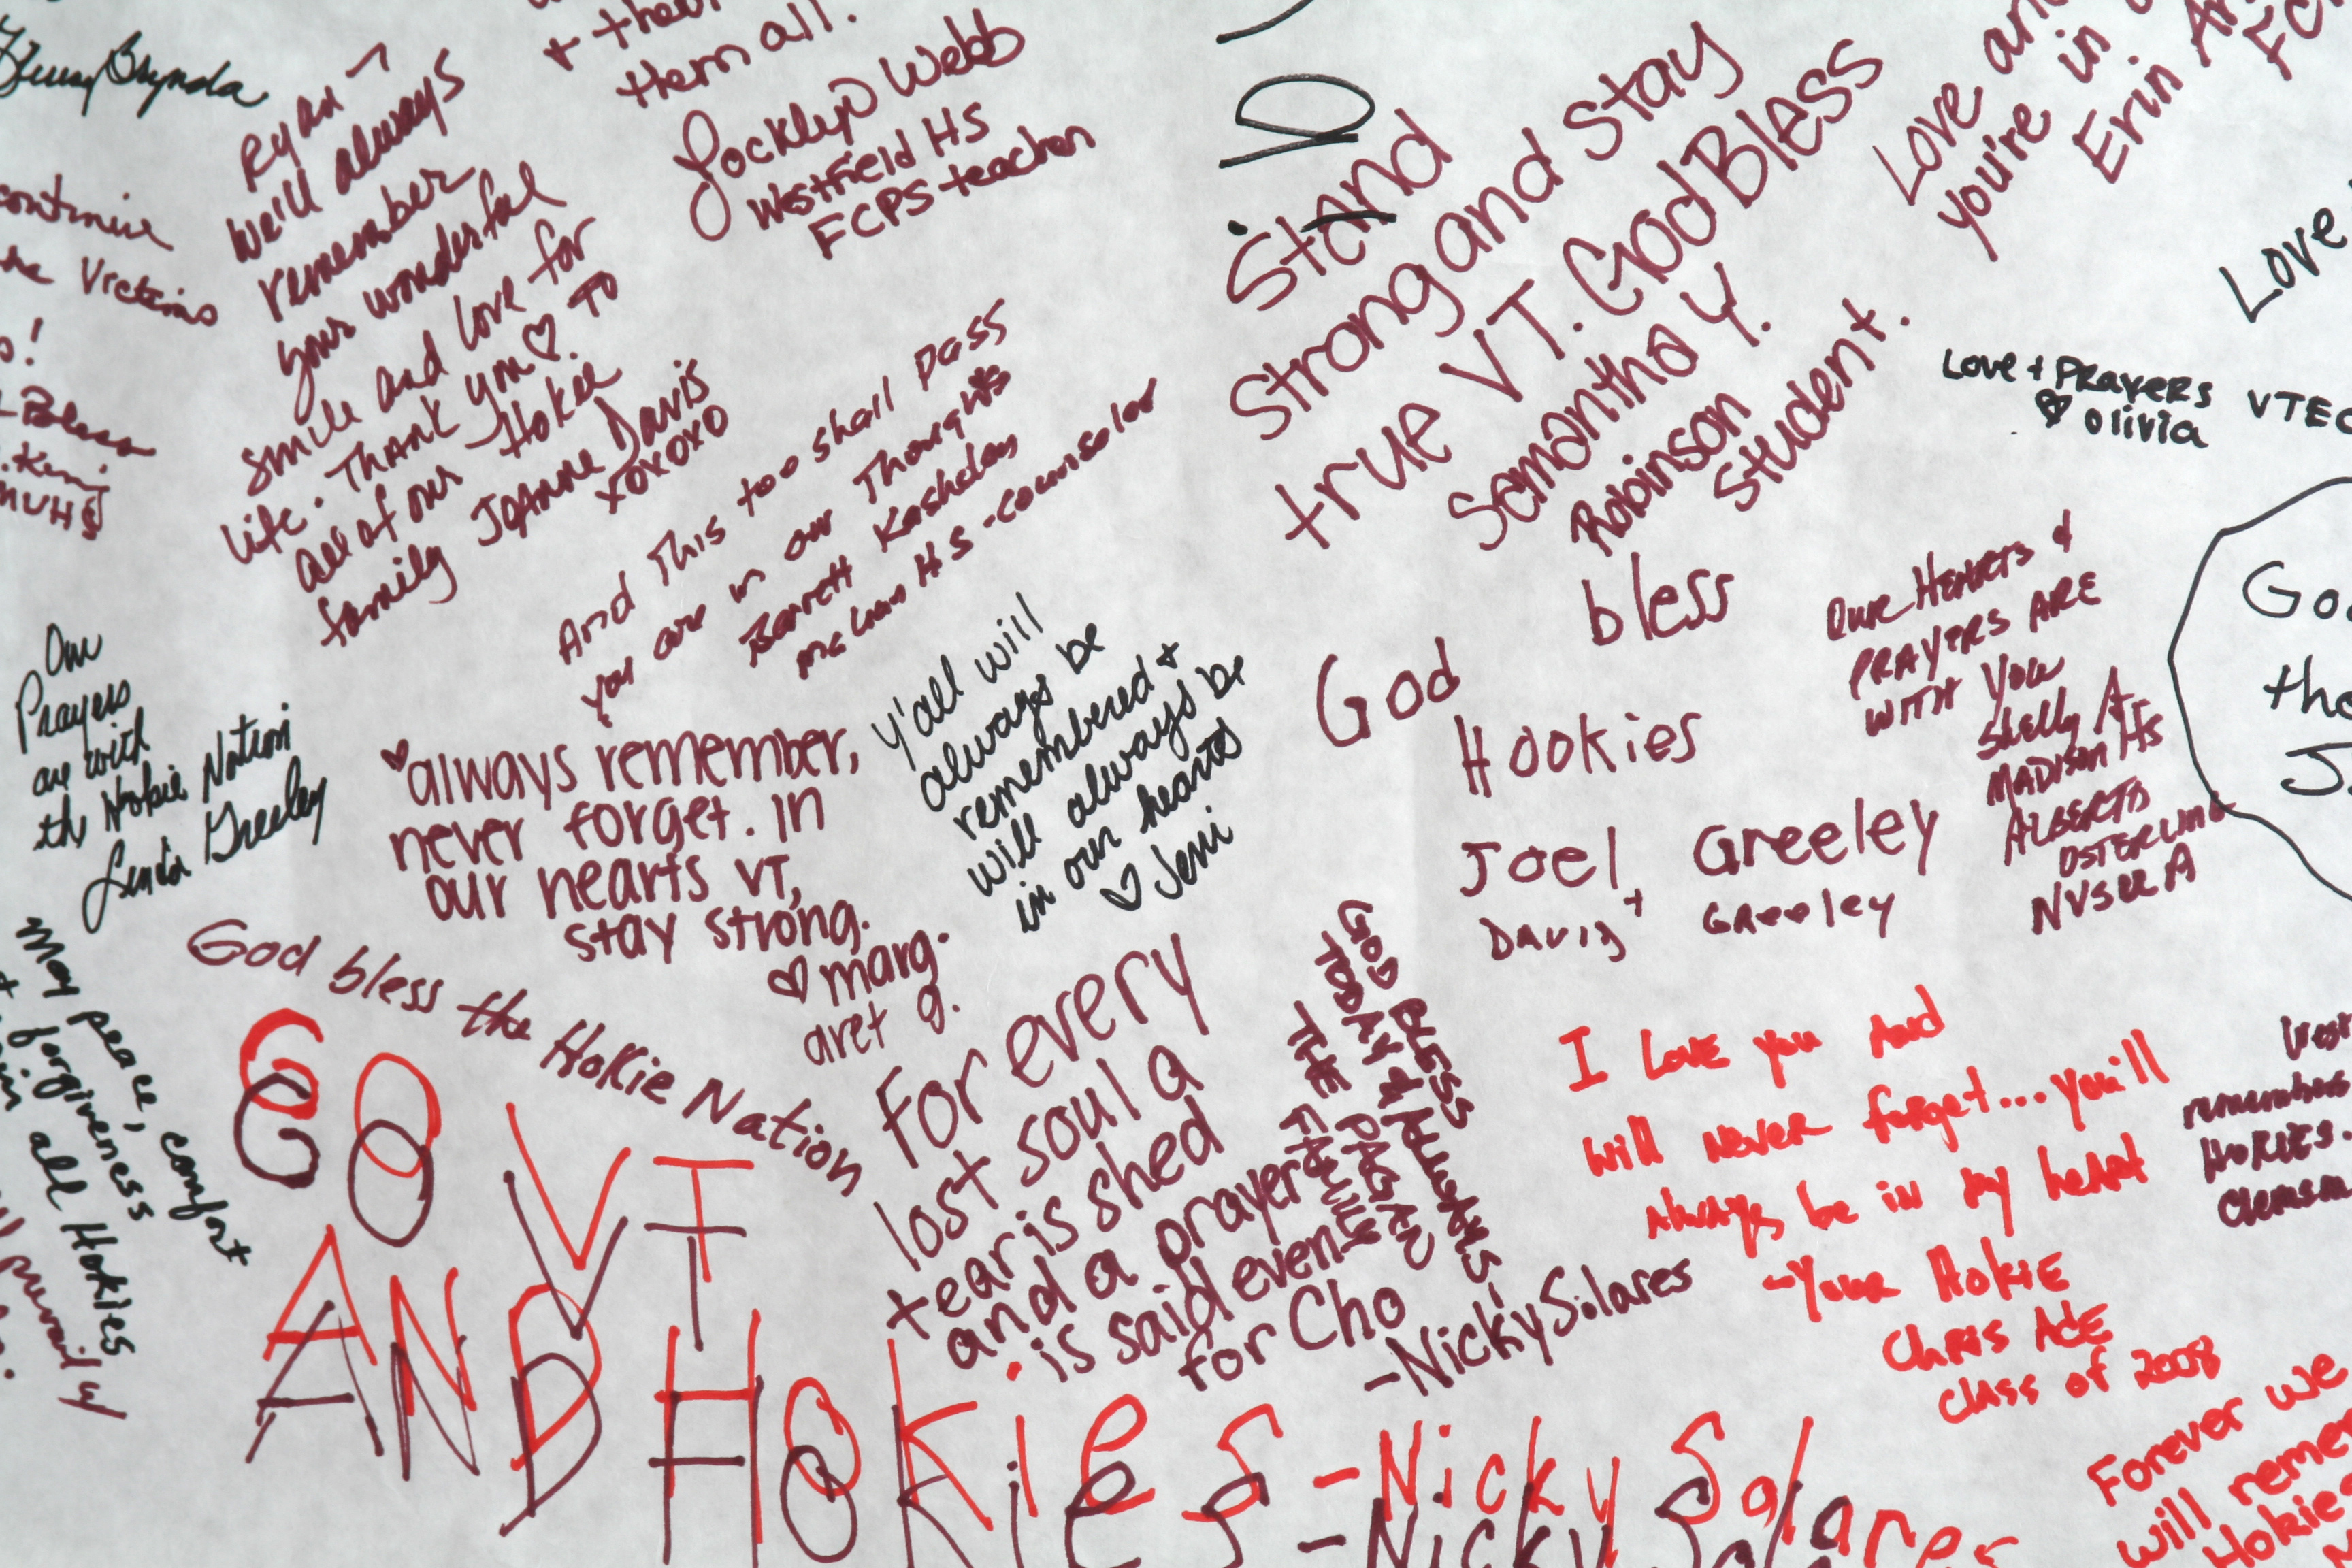 Ryan -
We'll always
remember
your wonderful
smile and love for
life. Thank you ♡. To
all of our Hokie
family Joanne Davis
xoxoxo
continue
the Victims
Bless
+ their
them all.
Jocklyn Webb
Westfield HS
FCPS teacher
And This too shall pass
you are in our Thoughts
Barrett
HS - counselor
Stand
Strong and Stay
true VT. God Bless
Samantha Y.
Robinson
Student.
Love and
you're in
Erin
Love
Love + Prayers
♡ Olivia
VTEC
Our
Prayers
are with
the Hokie Nation
Linda Greeley
♡always remember,
never forget. in
our hearts VT,
stay strong.
♡ marg.
aret g.
y'all will
always be
remembered +
will always be
in our hearts
♡ Jeni
God bless
Hookies
Joel Greeley
David + Greeley
Our Hearts &
PRAYERS ARE
WITH You
Shelly A.
MADISON HS
ALBERTA
OSTERLING
God bless the Hokie Nation
May peace, comfort
+ forgiveness
all Hokies
For every
lost soul a
tear is shed
and a prayer
is said even
for Cho
-Nicky Solares
GOD BLESS
TODAY & ALWAYS!
THE
FAMILY
I Love you And
will never forget...you'll
Always be in my heart
-Your Hokie
Chris Ade
Class of 2008
remember
HOKIES.
GO VT
AND HOKiES - Nicky Solares
GO VT
AND HOKiES - Nicky Solares
Forever we
will